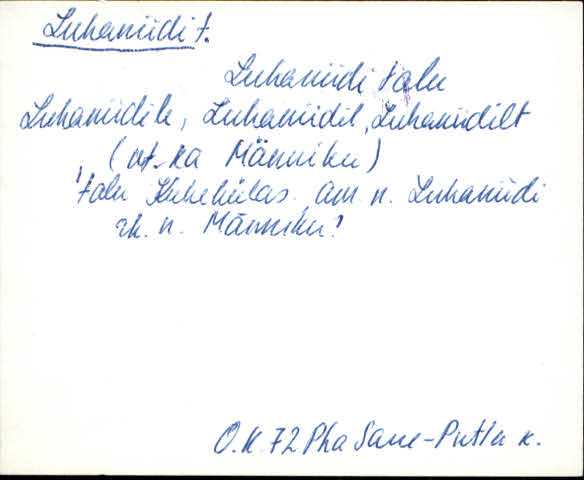 Luhaniidi t.
Luhaniidi talu
Luhaniidile, Luhaniidil, Luhaniidilt
(vt. ka Männiku)
'talu Kehekülas. am n. Luhaniidi
rk. n. Männiku'
O.K. 72 Pha Saue-Putla k.